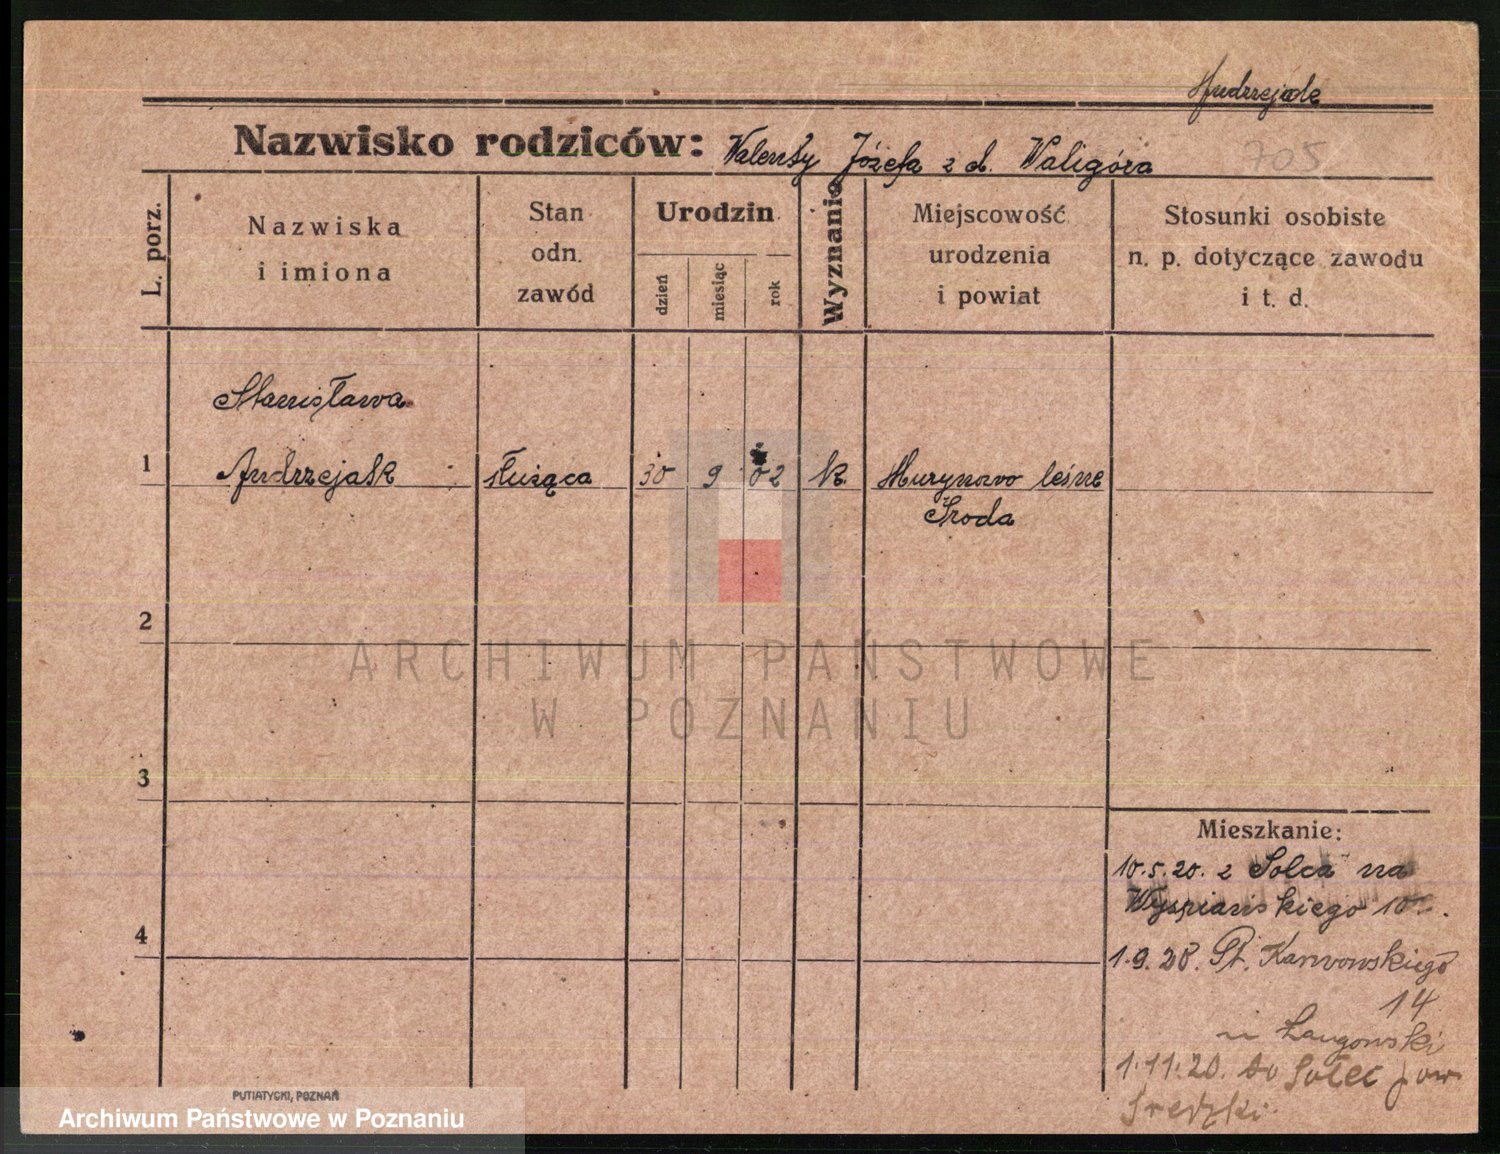 Andrzejak
Nazwisko rodziców: Walenty Józefa z d. Waligóra 705
L. porz.
Nazwiska
i imiona
Stan
odn.
zawód
Urodzin
dzień
miesiąc
rok
Wyznanie
Miejscowość
urodzenia
i powiat
Stosunki osobiste
n. p. dotyczące zawodu
i t. d.
Stanisława
1 Andrzejak służąca 30 9 02 k. Murzynowo leśne
Środa
2
3
4
Mieszkanie:
10.5.20. z Solca na
Wyspiańskiego 10
1.9.20. St. Karwowskiego
14
u Langowski
1.11.20. do Solec pow
Średzki
ARCHIWUM PAŃSTWOWE
W POZNANIU
PUTIATYCKI, POZNAŃ
Archiwum Państwowe w Poznaniu